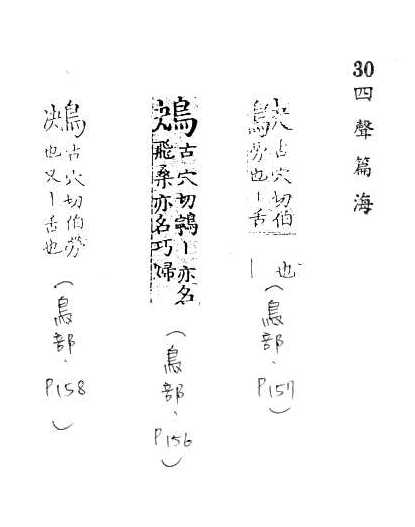 30四聲篇海
古穴切伯
勞也丨舌
也
丨
(鳥部．P157)
鴂
古穴切丨亦名
飛桑亦名巧婦
(鳥部．P156)
鴃
古穴切伯勞
也又丨舌也
(鳥部．P158)